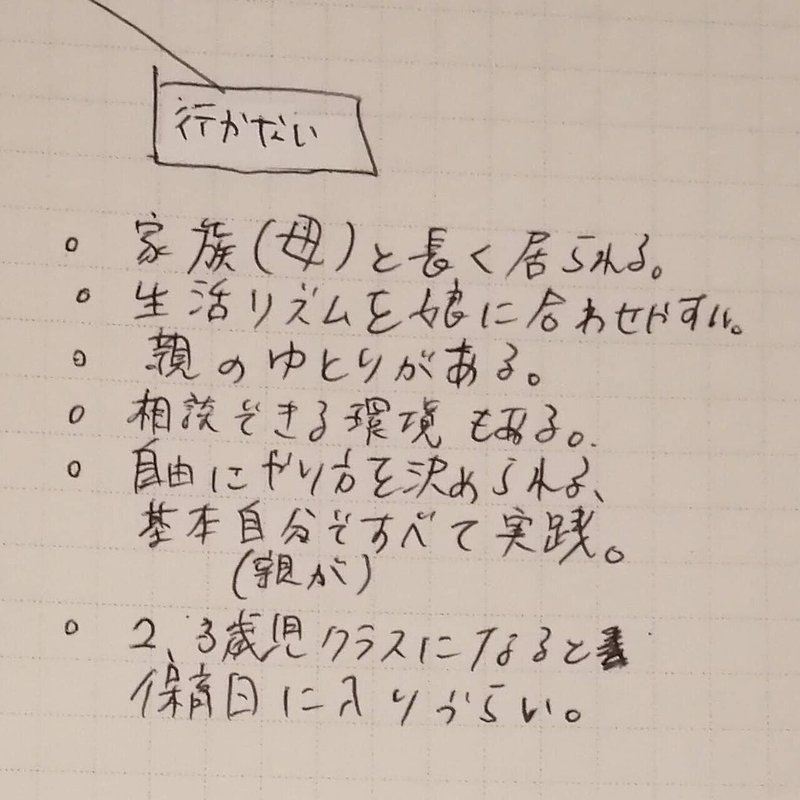 行かない
○ 家族(母)と長く居られる。
○ 生活リズムを娘に合わせやすい。
○ 親のゆとりがある。
○ 相談できる環境もある。
○ 自由にやり方を決められる、
基本自分ですべて実践。
(親が)
○ 2、3歳児クラスになると
保育日に入りづらい。